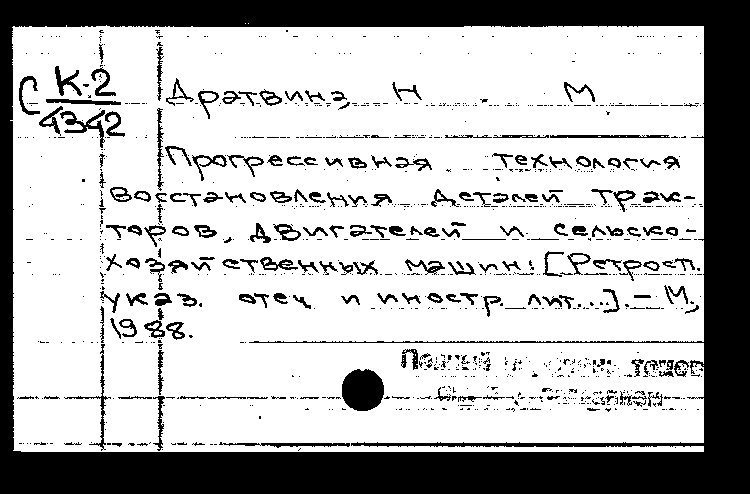 С К-2
4342
Дратвина, Н. М
Прогрессивная технология
восстановления деталей трак-
торов, двигателей и сельско-
хозяйственных машин: [Ретросп.
указ. отеч и иностр лит...]. – М.,
1988.
Полный томов